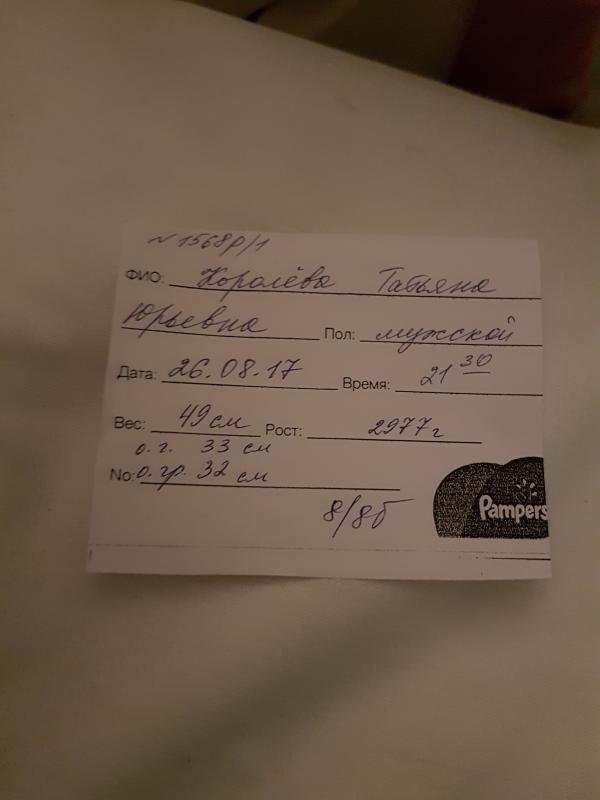 N 1568р/1
ФИО: Королёва Татьяна
Юрьевна Пол: мужской
Дата: 26.08.17 Время: 21 30
Вес: 49 см Рост: 2977 г
о. г. 33 см
No: о. гр. 32 см
8/8б
Pampers